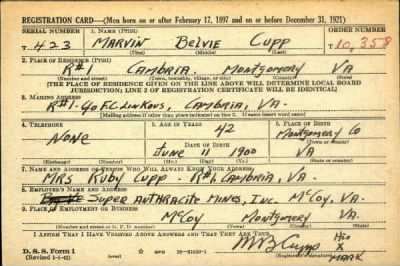 REGISTRATION CARD—(Men born on or after February 17, 1897 and on or before December 31, 1921)
SERIAL NUMBER 1. NAME (Print) ORDER NUMBER
T 423 MARVIN BELVIE CUPP T10,358
(First) (Middle) (Last)
2. PLACE OF RESIDENCE (Print)
R#1 CAMBRIA MONTGOMERY VA
(Number and street) (Town, township, village, or city) (County) (State)
[THE PLACE OF RESIDENCE GIVEN ON THE LINE ABOVE WILL DETERMINE LOCAL BOARD
JURISDICTION; LINE 2 OF REGISTRATION CERTIFICATE WILL BE IDENTICAL]
3. MAILING ADDRESS
R#1-40 F.C. LINKOUS, CAMBRIA, VA.
[Mailing address if other than place indicated on line 2. If same insert word same]
4. TELEPHONE 5. AGE IN YEARS 6. PLACE OF BIRTH
NONE 42 MONTGOMERY CO
DATE OF BIRTH (Town or county)
JUNE 11 1900 VA
(Exchange) (Number) (Mo.) (Day) (Yr.) (State or country)
7. NAME AND ADDRESS OF PERSON WHO WILL ALWAYS KNOW YOUR ADDRESS
MRS RUBY CUPP - R#1, CAMBRIA, VA.
8. EMPLOYER'S NAME AND ADDRESS
SUPER ANTHRACITE MINES, INC. McCOY, VA.
9. PLACE OF EMPLOYMENT OR BUSINESS
McCOY MONTGOMERY VA
(Number and street or R. F. D. number) (Town) (County) (State)
I AFFIRM THAT I HAVE VERIFIED ABOVE ANSWERS AND THAT THEY ARE TRUE.
D. S. S. Form 1 M B Cupp HIS
(Revised 1-1-42) GPO X
MARK